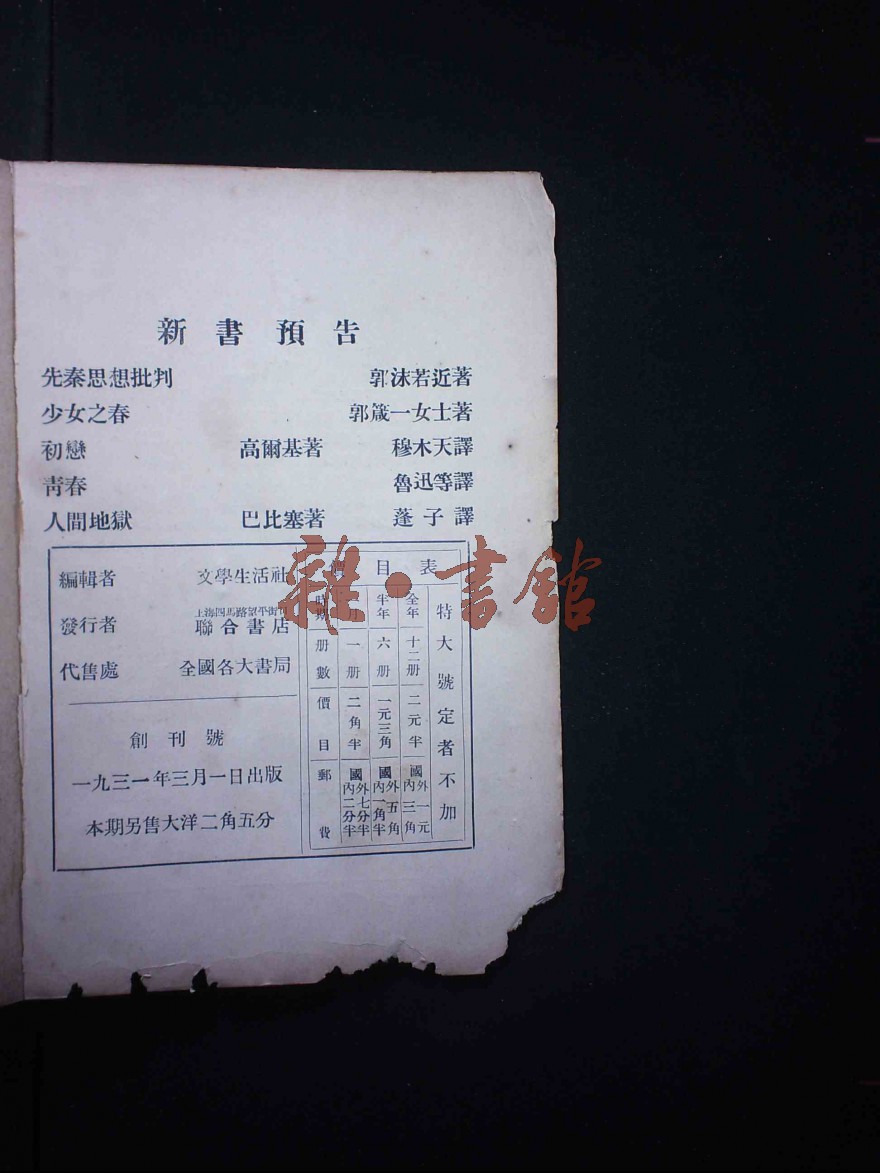 新書預告
先秦思想批判 郭沫若近著
少女之春 郭箴一女士著
初戀 高爾基著 穆木天譯
靑春 魯迅等譯
人間地獄 巴比塞著 蓬子譯
編輯者 文學生活社
上海四馬路望平街
發行者 聯合書店
代售處 全國各大書局
創刊號
一九三一年三月一日出版
本期另售大洋二角五分
目表
特大號定者不加
全年 十二册 二元半 國內三角 國外一元
半年 六册 一元三角 國內一角半 國外五角
月 一册 二角半 國內二分半 國外七分半
册數 價目 郵費
雜·書館